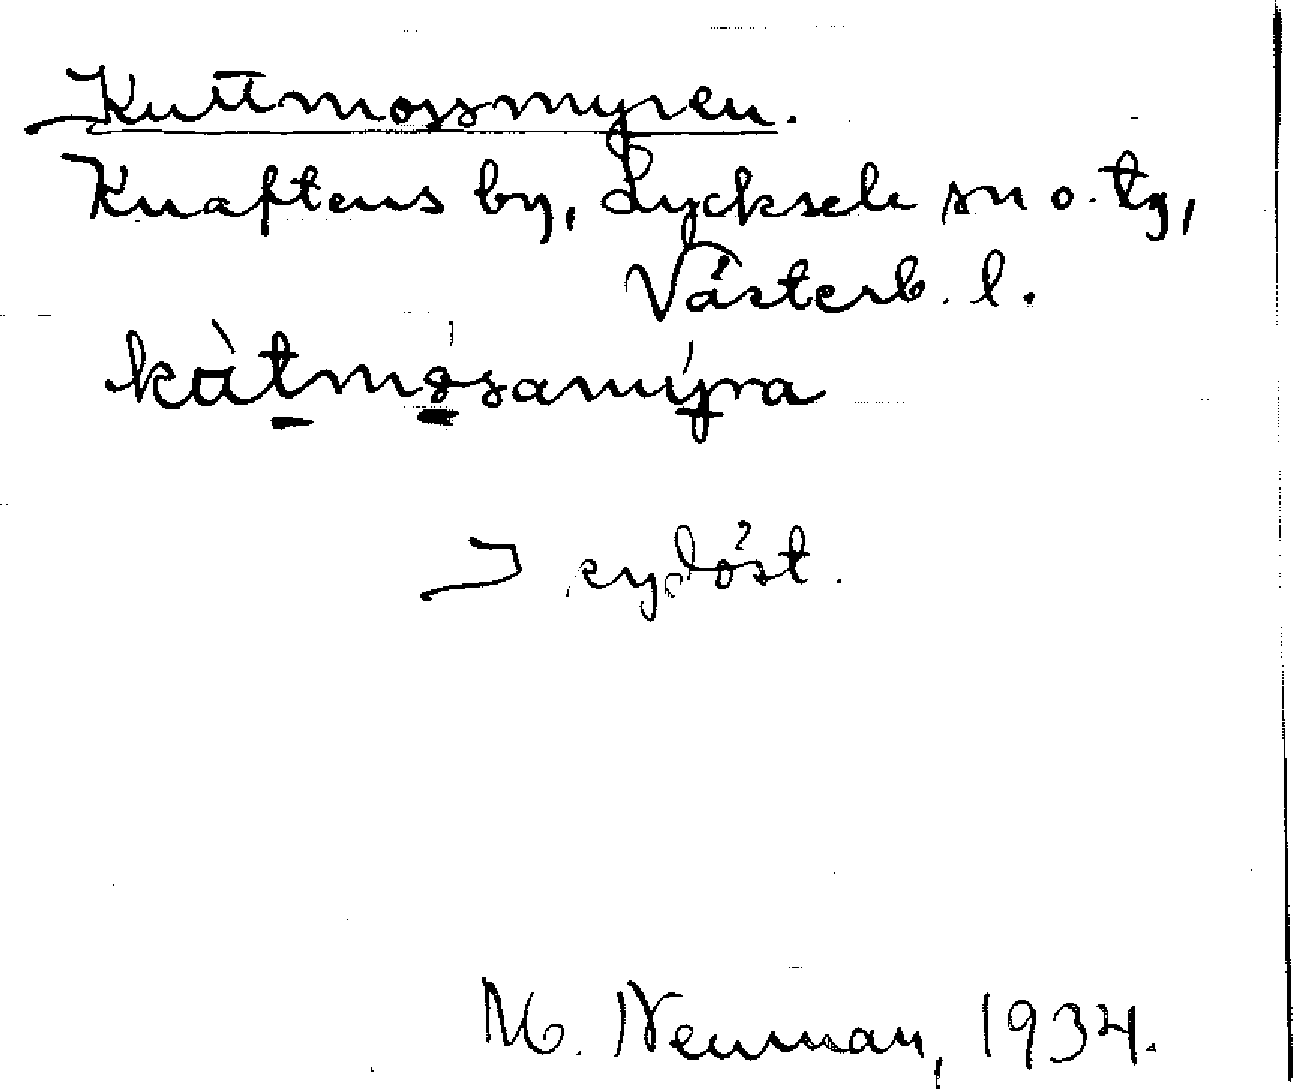 Kuttmossmyren.
Knaftens by, Lycksele sn o. tg,
Västerb. l.
kàtmósamýra
I sydöst.
M. Neuman, 1934.